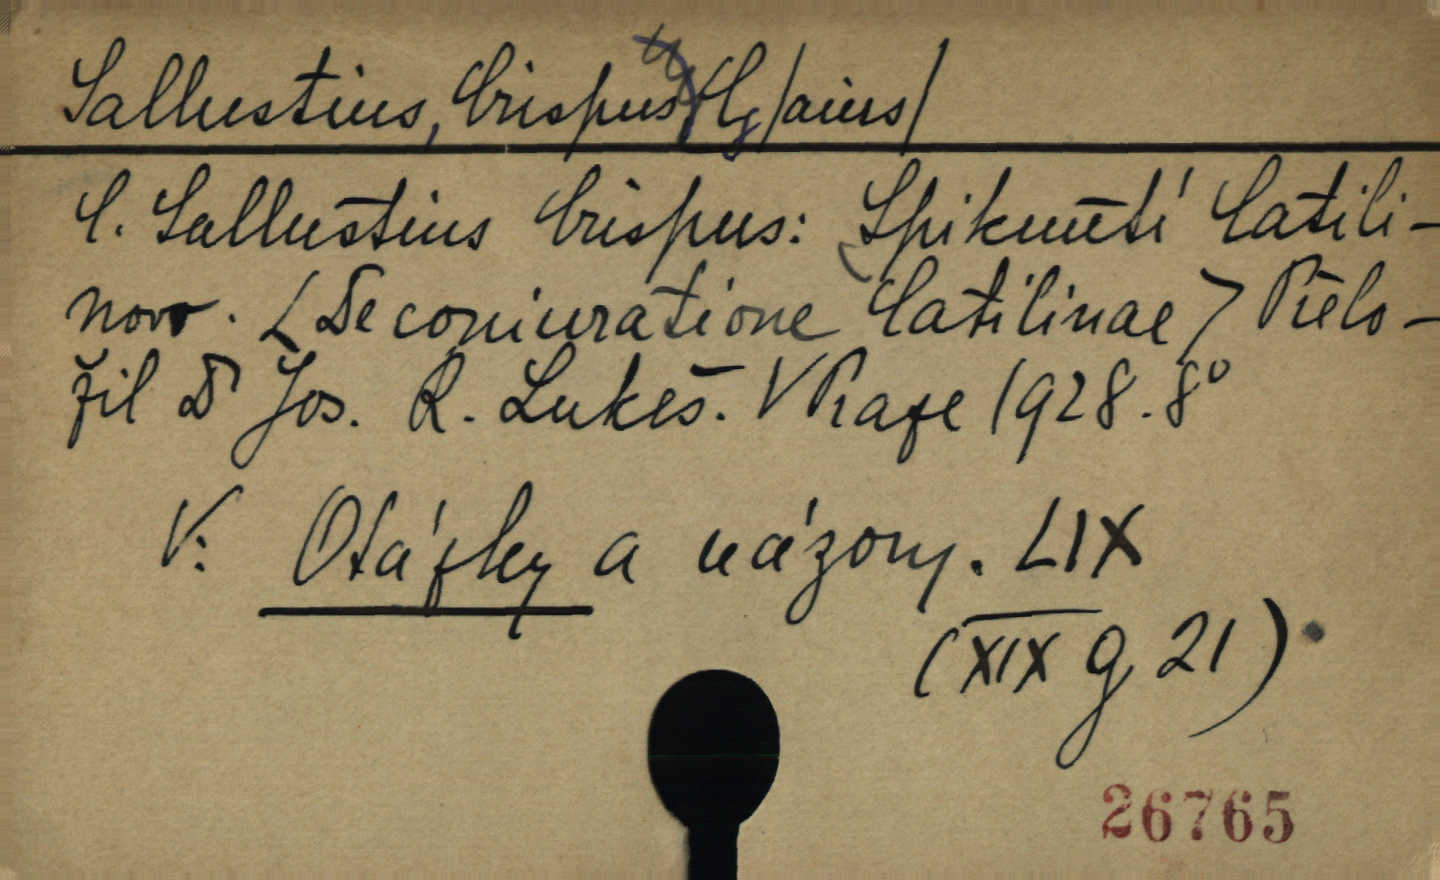 Sallustius, Crispus, G/aius/
C. Sallustius Crispus: Spiknutí Catili-
novo. <De coniuratione Catilinae> Přelo-
žil Dr Jos. R. Lukeš. V Praze 1928. 8°
V: Otázky a názory. LIX
(XIX g 21)
26765